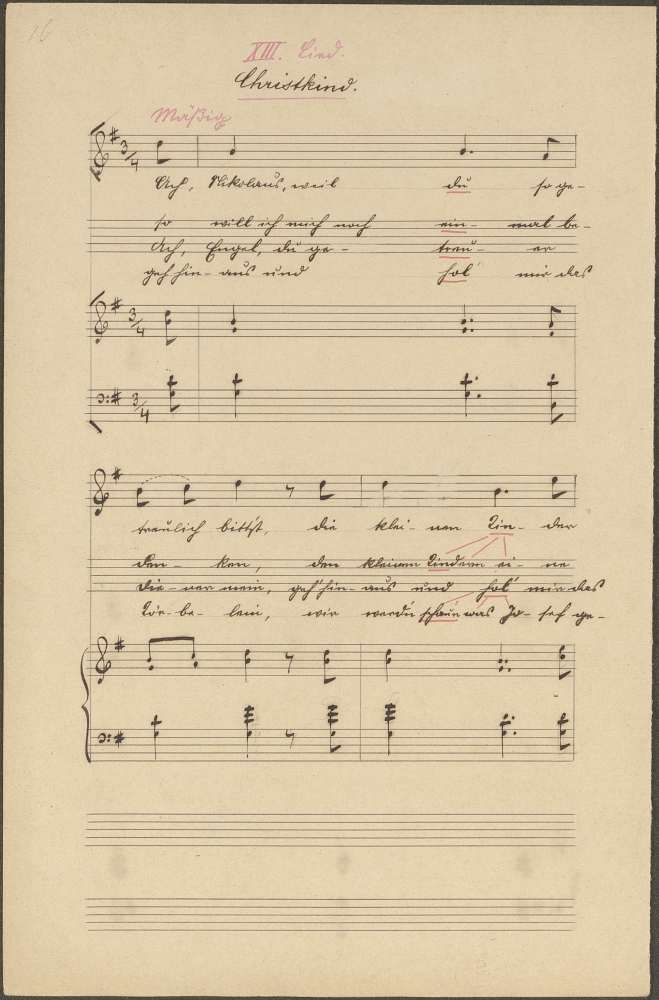 16
XIII. Lied.
Christkind.
Mäßig
3/4
Ach, Nikolaus, weil du so ge-
so will ich mich noch ein- mal be-
Ach, Engel, du ge- treu- er
geh hin- aus und hol' mir das
3/4
3/4
traulich bittst, die klei- nen Kin- der
den- ken, den kleinen Kindern ei- ne
Die- ner mein, geh' hin- aus und hol' mir das
Kör- be- lein, wir werdn schaun was Jo- sef ge-